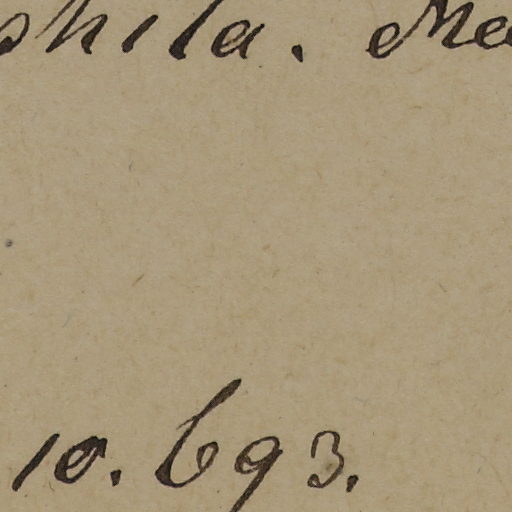 shila. Me
10.693.